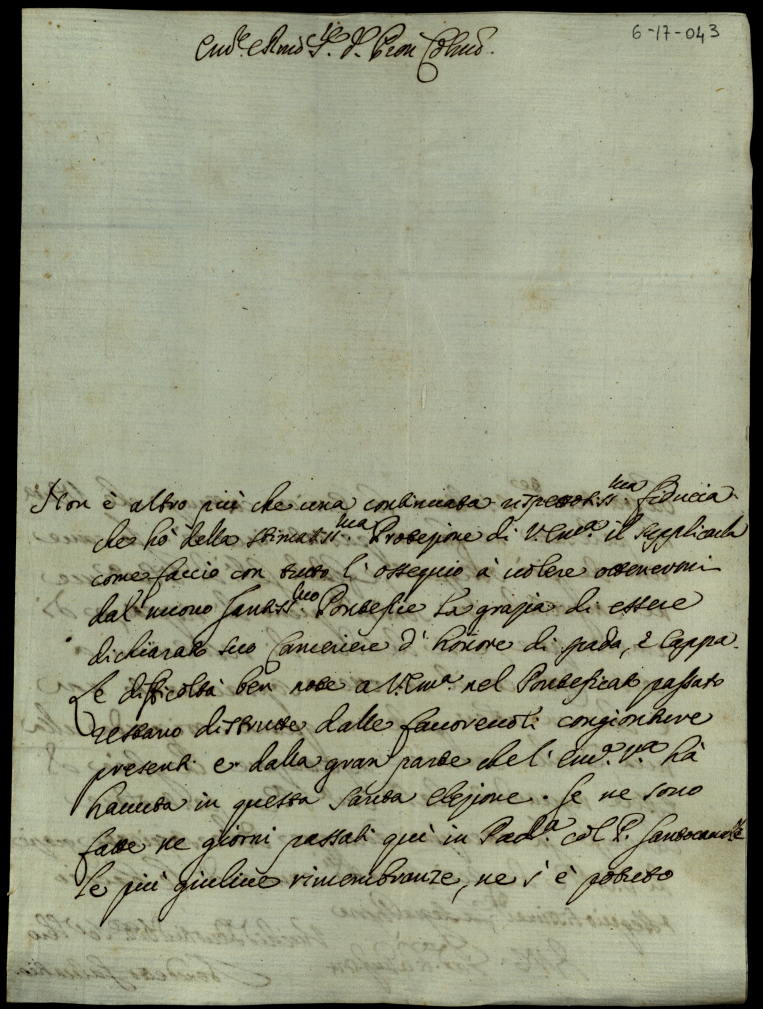 6-17-043
Em.e e Rmo S.re P.ron Colmo.
Non è altro più che una continuata rispettosiss.ma fiducia
che hò della stimatiss.ma Protezione di V. Em.a il supplicarla
come faccio con tutto l'ossequio à volere ottenermi
dal nuovo Santiss.mo Pontefice la grazia di essere
dichiarato suo Cameriere d'honore di spada, e Cappa.
Le difficoltà ben note a V. Em.a nel Pontificato passato
restano distrutte dalle favorevoli congionture
presenti e dalla gran parte che l'Em.a V.a hà
havuta in questa Santa Elezione. Se ne sono
fatte ne giorni passati qui in Pad.a col P.
le più giulive rimembranze, ne s'è potuto